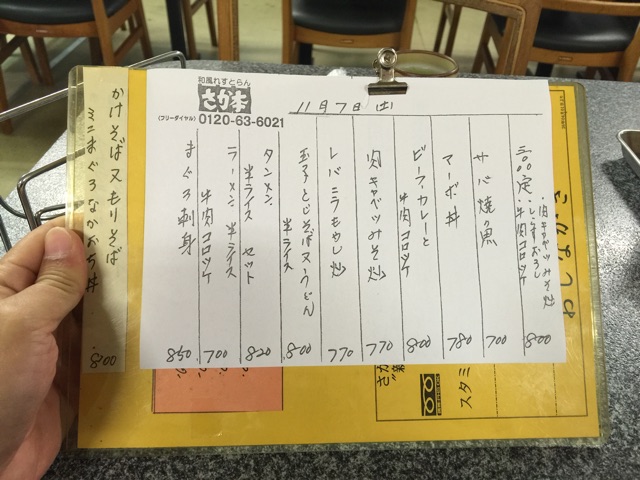 和風れすとらん
さがみ
〈フリーダイヤル〉
0120-63-6021
11月7日(土)
・肉キャベツみそ炒
・しらすおろし
・牛肉コロッケ
800
サバ焼魚
700
マーボ丼
780
ビーフカレーと
牛肉コロッケ
800
肉キャベツみそ炒
770
レバニラもやし炒
770
玉子とじそば又うどん
半ライス
800
タンメン
半ライス セット
820
ラーメン 半ライス
牛肉コロッケ
700
まぐろ刺身
850
かけそば又もりそば
ミニまぐろなかおち丼
800
スタミ